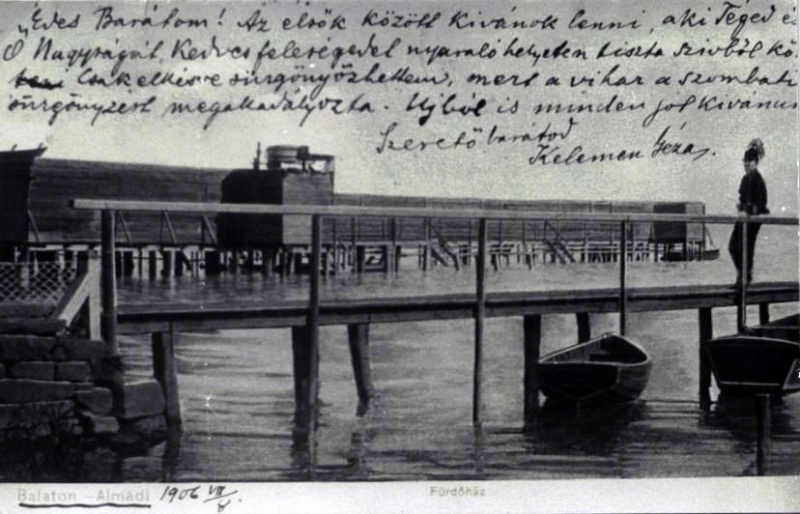 "Édes Barátom! Az elsők között kivánok lenni, aki Téged és
Ő Nagyságát, Kedves feleségedet nyaralóhelyeten tiszta szivből kö-
Csak elkésve sürgönyözhettem, mert a vihar a szombati
sürgönyzést megakadályozta. Ujból is minden jót kivánva
Szerető barátod
Kelemen Géza.
Balaton - Almádi 1906 VII/8.
Fürdőház